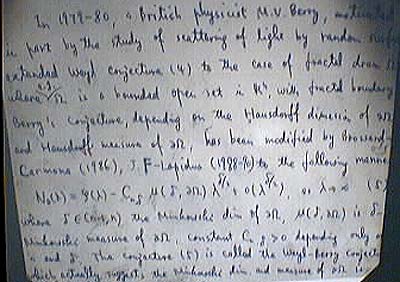 In 1979-80, a British physicist M.V. Berry, motivated
in part by the study of scattering of light by random surfaces
extended Weyl conjecture (4) to the case of fractal drum Ω
where Ω is a bounded open set in ℝⁿ, with fractal boundary
Berry's conjecture, depending on the Hausdorff dimension of ∂Ω
and Hausdorff measure of ∂Ω, has been modified by Brossard-
Carmona (1986), J. F-Lapidus (1988-90) to the following manner
N₀(λ) = φ(λ) - Cₙ,δ μ(δ, ∂Ω) λ^δ/2 + o(λ^δ/2), as λ→∞ (5)
where δ∈(n-1, n) the Minkowski dim of ∂Ω, μ(δ, ∂Ω) is δ-
Minkowski measure of ∂Ω, constant Cₙ,δ > 0 depending only on
n and δ. The conjecture (5) is called the Weyl-Berry conjecture
which actually suggests the Minkowski dim and measure of ∂Ω is